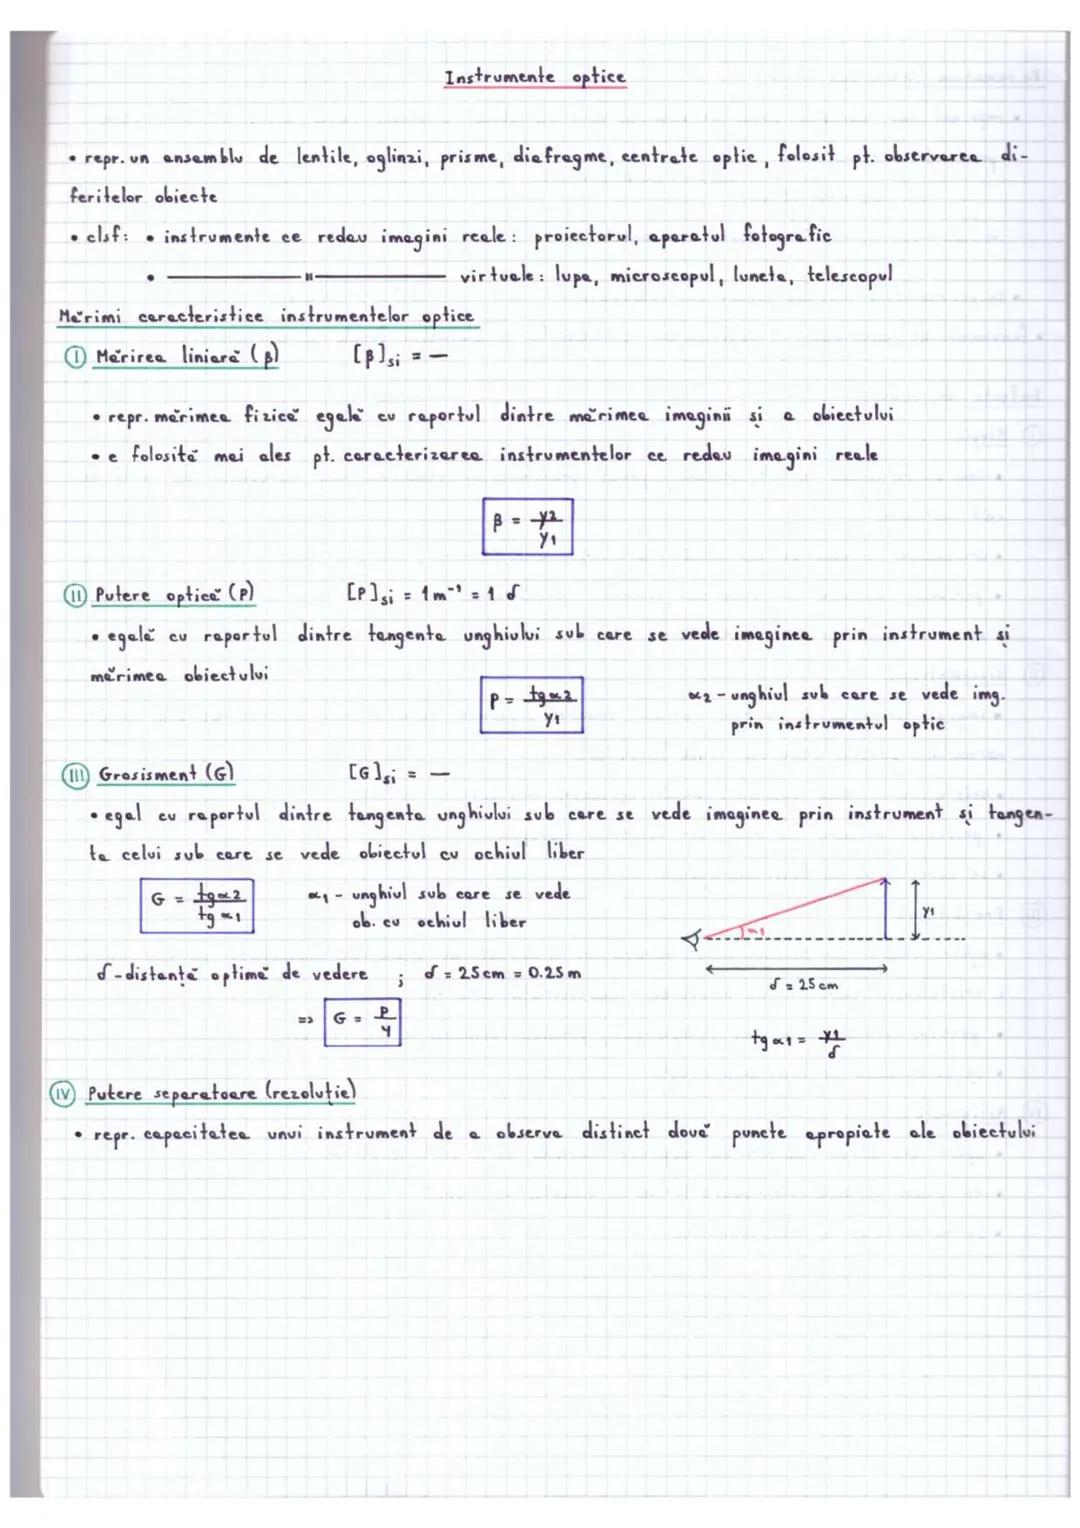 Instrumente optice
• repr. un ansamblu de lentile, oglinzi, prisme, diafragme, centrate optic, folosit pt. observarea di-
feritelor obiecte
• clsf: • instrumente ce redau imagini reale: proiectorul, aparatul fotografic
• ——— " ——— virtuale: lupa, microscopul, luneta, telescopul
Mărimi caracteristice instrumentelor optice
I Mărirea liniară (β) [β]si = —
• repr. mărimea fizică egală cu raportul dintre mărimea imaginii și a obiectului
• e folosită mai ales pt. caracterizarea instrumentelor ce redau imagini reale
β = y2/y1
II Putere optică (P) [P]si = 1m⁻¹ = 1 δ
• egală cu raportul dintre tangenta unghiului sub care se vede imaginea prin instrument și
mărimea obiectului
P = tgα2/y1
α2 - unghiul sub care se vede img.
prin instrumentul optic
III Grosisment (G) [G]si = —
• egal cu raportul dintre tangenta unghiului sub care se vede imaginea prin instrument și tangen-
ta celui sub care se vede obiectul cu ochiul liber
G = tgα2/tgα1
α1 - unghiul sub care se vede
ob. cu ochiul liber
α1
y1
δ - distanță optimă de vedere ; δ = 25cm = 0.25m
δ = 25cm
=> G = P/4
tgα1 = y1/δ
IV Putere separatoare (rezoluție)
• repr. capacitatea unui instrument de a observa distinct două puncte apropiate ale obiectului